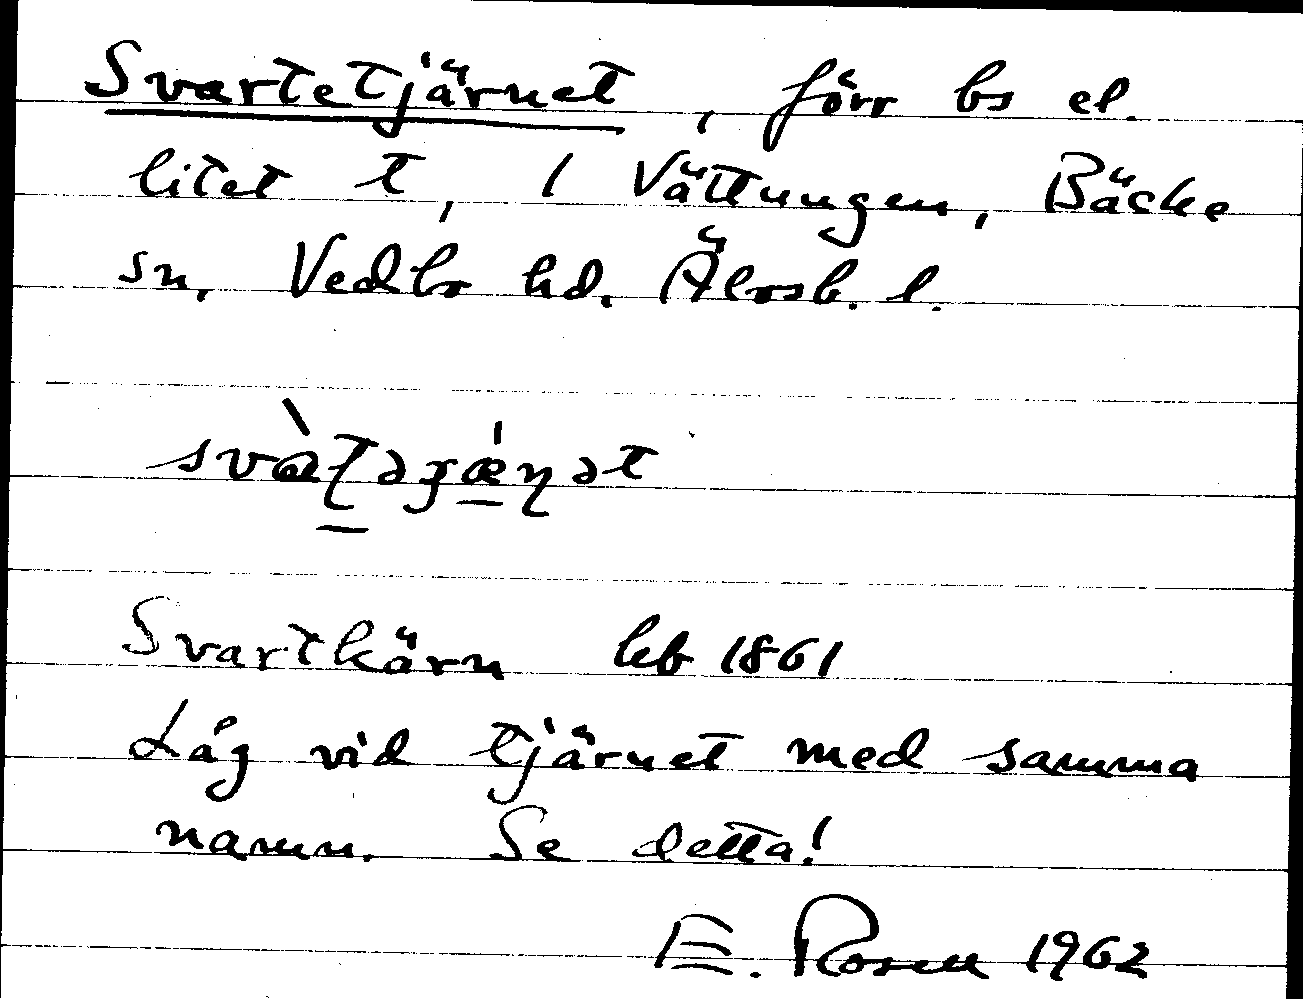 Svartetjärnet, förr bs el.
litet t, i Vättungen, Bäcke
sn, Vedbo hd. Älvsb. l.
svàʈəɟǽɳət
Svartkärn hfb 1861
Låg vid tjärnet med samma
namn. Se detta!
E. Rosell 1962